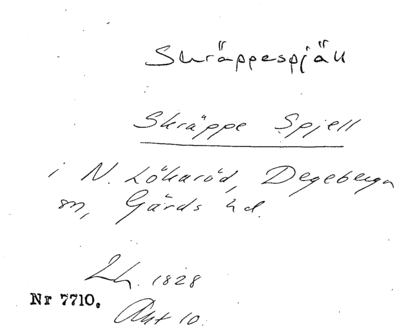 Skräppespjäll
Skräppe Spjell
i N. Lökaröd, Degeberga
sn, Gärds hd.
Lh. 1828
Nr 7710.
Akt 10.